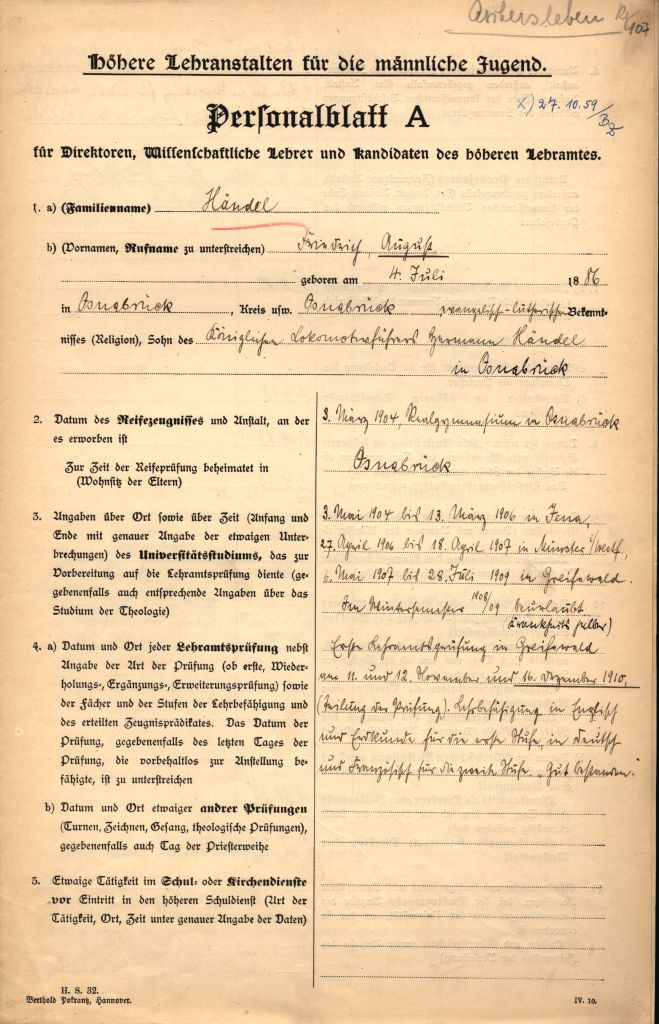 Aschersleben
107
Höhere Lehranstalten für die männliche Jugend.
Personalblatt A
x) 27.10.59
für Direktoren, Wissenschaftliche Lehrer und Kandidaten des höheren Lehramtes.
1. a) (Familienname) Händel
b) (Vornamen, Rufname zu unterstreichen) Friedrich, August
geboren am 4. Juli 1886
in Osnabrück, Kreis usw. Osnabrück evangelisch-lutherischen Bekennt-
nisses (Religion), Sohn des Königlichen Lokomotivführers Hermann Händel
in Osnabrück
2. Datum des Reifezeugnisses und Anstalt, an der
es erworben ist
3. März 1904, Realgymnasium in Osnabrück
Zur Zeit der Reifeprüfung beheimatet in
(Wohnsitz der Eltern)
Osnabrück
3. Angaben über Ort sowie über Zeit (Anfang und
Ende mit genauer Angabe der etwaigen Unter-
brechungen) des Universitätsstudiums, das zur
Vorbereitung auf die Lehramtsprüfung diente (ge-
gebenenfalls auch entsprechende Angaben über das
Studium der Theologie)
3. Mai 1904 bis 13. März 1906 in Jena,
27. April 1906 bis 18. April 1907 in Münster i/Westf.
6. Mai 1907 bis 28. Juli 1909 in Greifswald.
Im Wintersemester 1908/09 beurlaubt
(Krankheits halber)
4. a) Datum und Ort jeder Lehramtsprüfung nebst
Angabe der Art der Prüfung (ob erste, Wieder-
holungs-, Ergänzungs-, Erweiterungsprüfung) sowie
der Fächer und der Stufen der Lehrbefähigung und
des erteilten Zeugnisprädikates. Das Datum der
Prüfung, gegebenenfalls des letzten Tages der
Prüfung, die vorbehaltlos zur Anstellung be-
fähigte, ist zu unterstreichen
Erste Lehramtsprüfung in Greifswald
am 11. und 12. November und 16. Dezember 1910,
(Teilung der Prüfung). Lehrbefähigung in Englisch
und Erdkunde für die erste Stufe, in Deutsch
und Französisch für die zweite Stufe. „Gut bestanden."
b) Datum und Ort etwaiger andrer Prüfungen
(Turnen, Zeichnen, Gesang, theologische Prüfungen),
gegebenenfalls auch Tag der Priesterweihe
5. Etwaige Tätigkeit im Schul- oder Kirchendienste
vor Eintritt in den höheren Schuldienst (Art der
Tätigkeit, Ort, Zeit unter genauer Angabe der Daten)
H. S. 32.
Berthold Pokrantz, Hannover.
IV. 10.